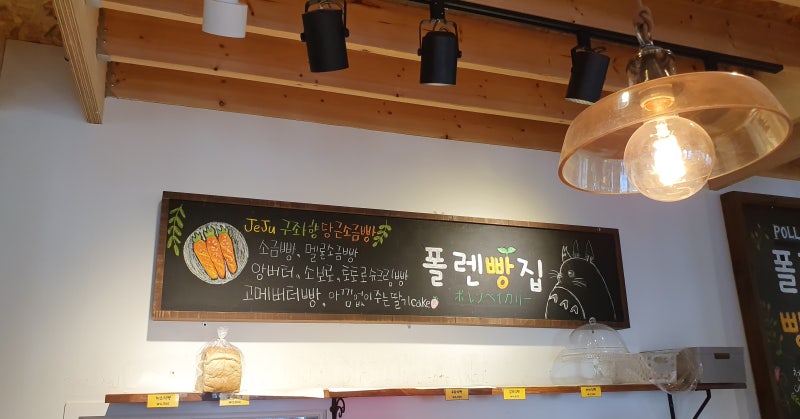 JeJu 구좌향당근소금빵
소금빵, 멜론소금빵
앙버터, 소보로, 토토로슈크림빵
고메버터빵, 아낌없이주는딸기cake
폴렌빵집
ポレンベイカリー
POLL
폴
빵